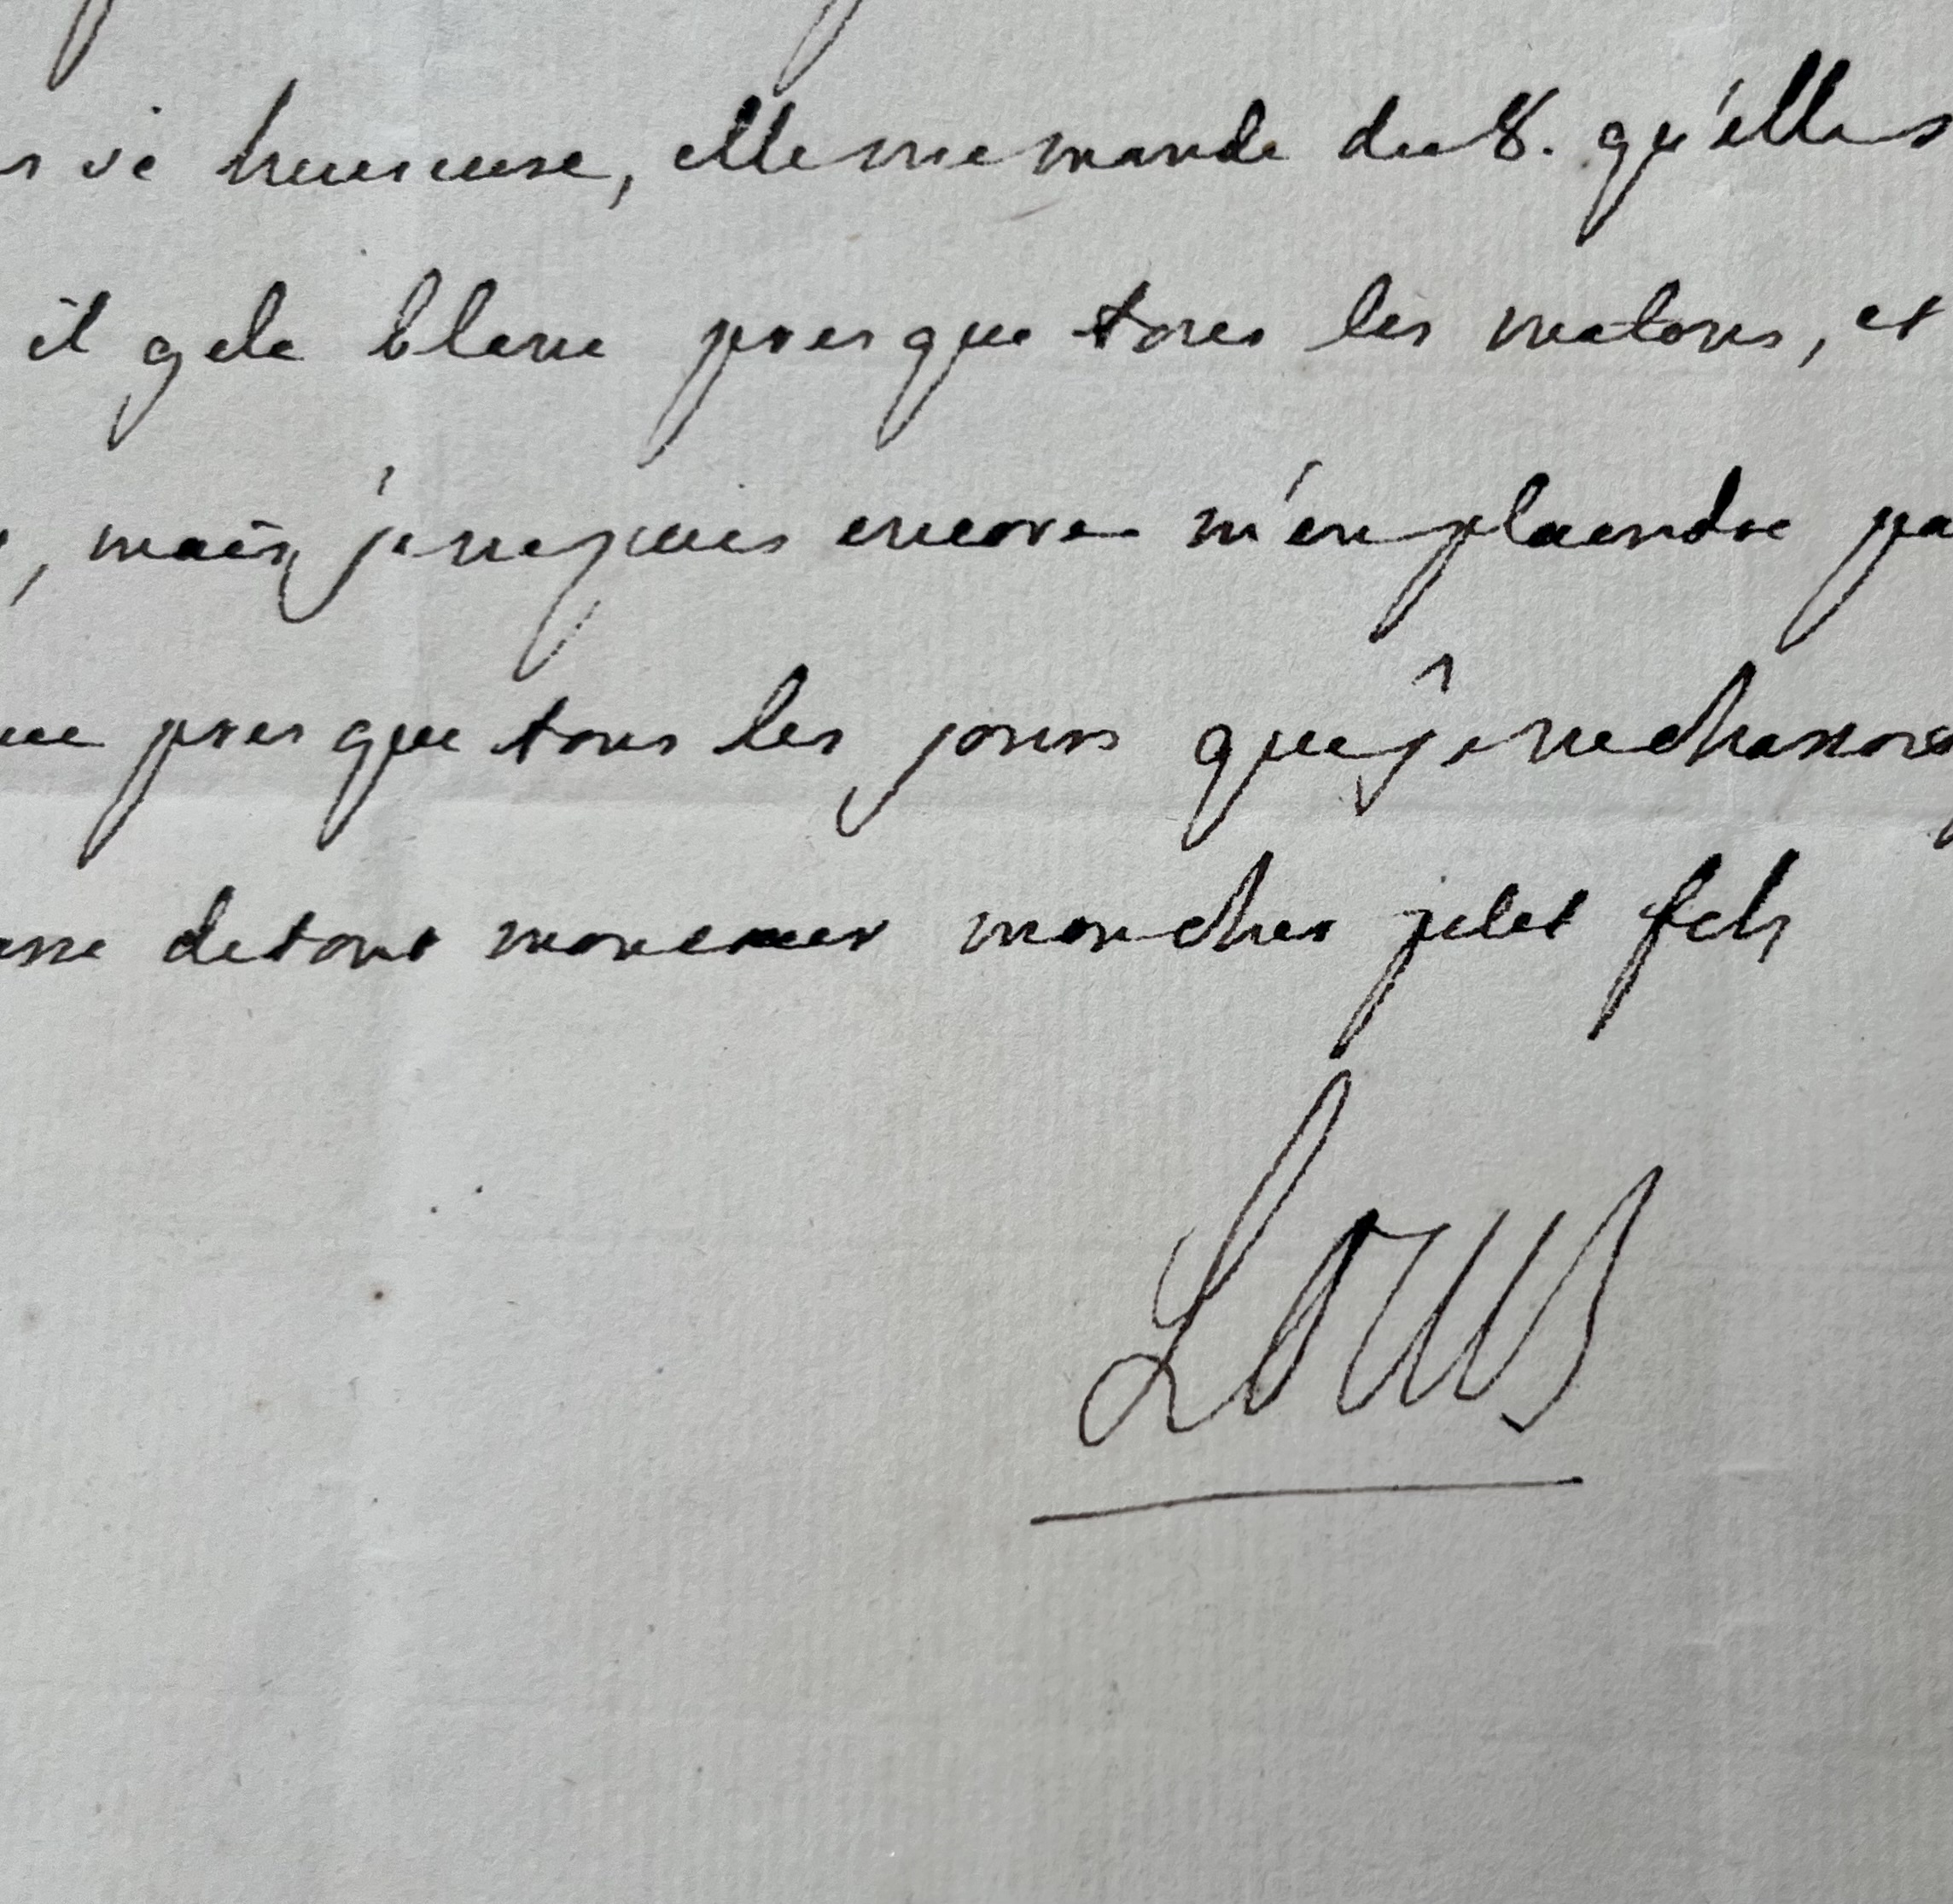 si heureuse, elle me mande du 8. qu'elle
il gele blanc presque tous les matins, et
, mais je ne puis encore m'en plaindre pa
ue presque tous les jours que je ne chasse
asse de tout mon cœur mon cher petit fils
Louis